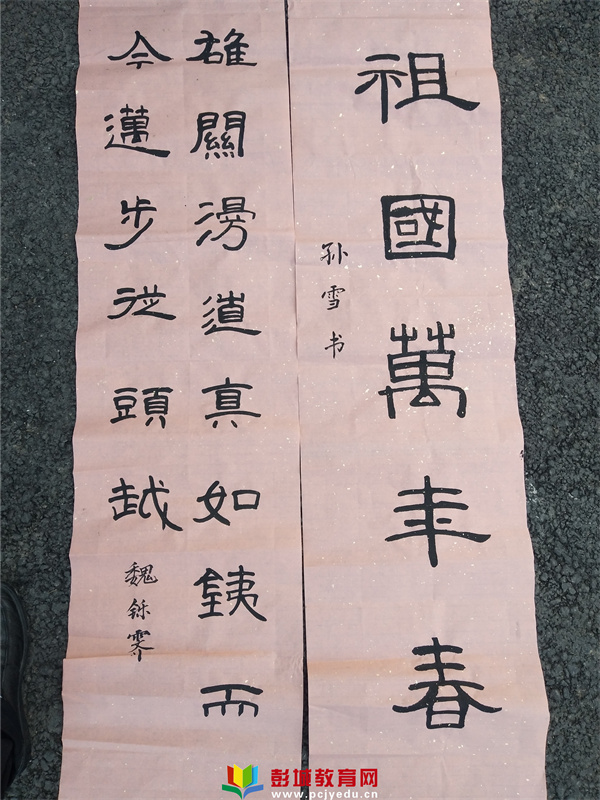 祖國萬年春
孙雪书
雄關漫道真如銕而
今邁步從頭越
魏铄霁
彭城教育网
www.pcjyedu.cn